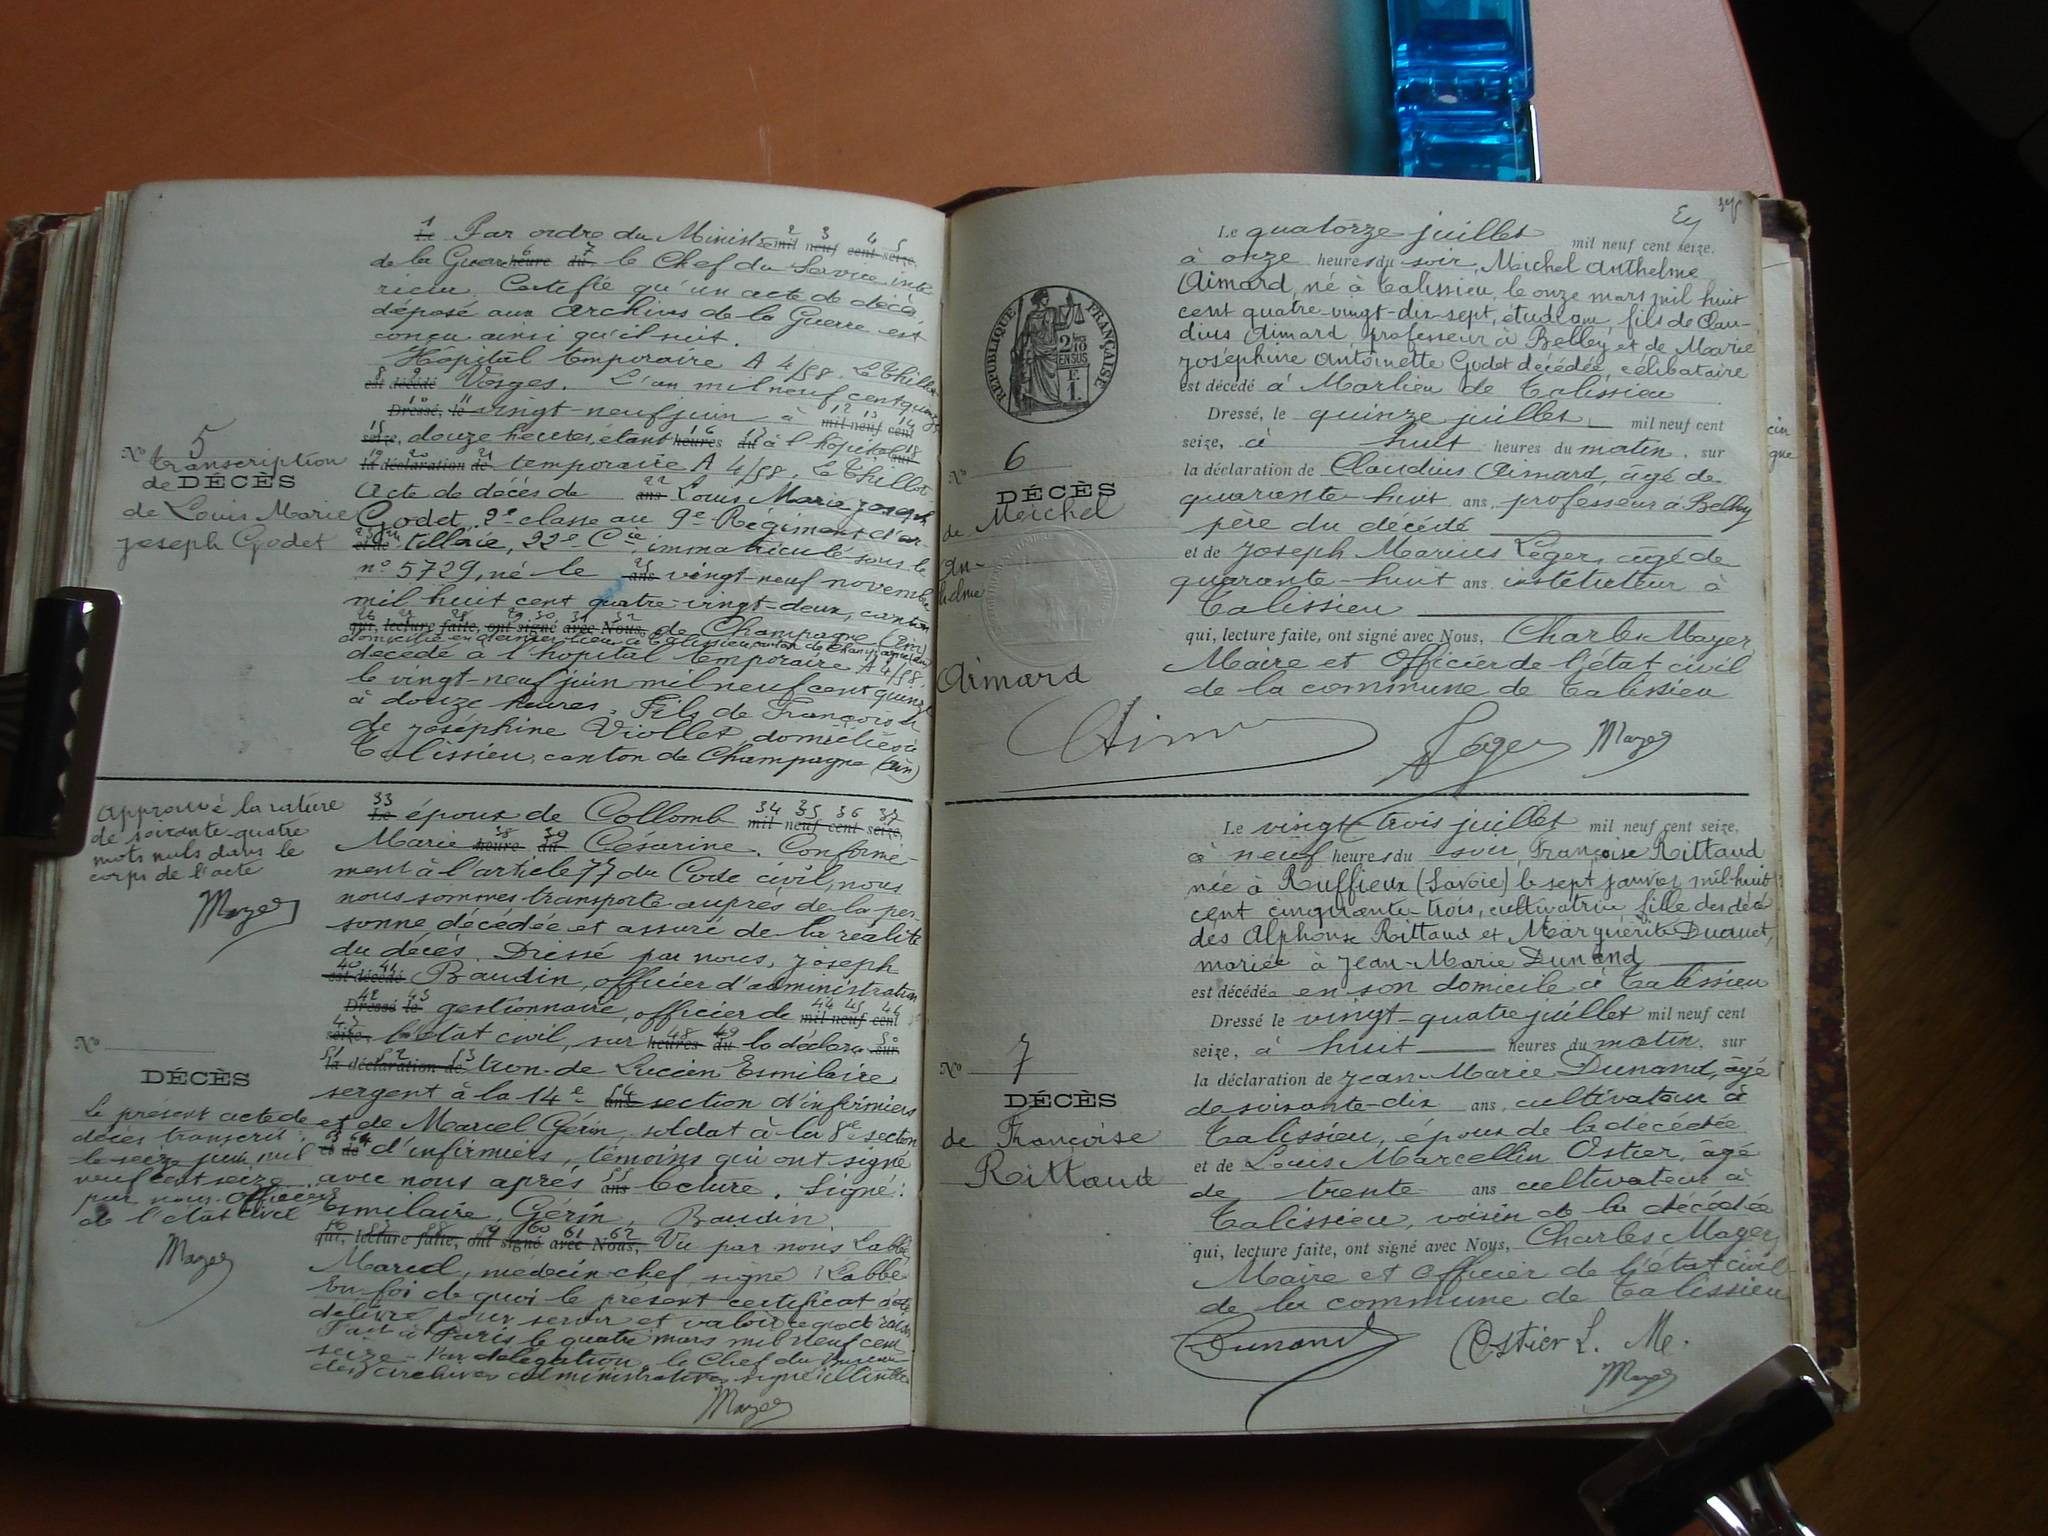 1 2 3 4 5
Le Par ordre du Ministre mil neuf cent seize.
6 7
de la Guerre heure du le Chef du Service inté
rieur Certifie qu'un acte de décès
déposé aux Archives de la Guerre est
conçu ainsi qu'il suit.
Hôpital temporaire A 4/58. Le Thillot
8 9
est décédé Vosges. L'an mil neuf cent quinze
10 11 12 13 14
Dressé, le vingt-neuf juin à mil neuf cent
15 16 17 18
seize, douze heures, étant heures du à l'hôpital sur
19 20 21
la déclaration de temporaire A 4/58. Le Thillot
22
Acte de décès de ans Louis Marie Joseph
Godet, 2e classe au 9e Régiment d'ar-
et de tillerie, 22e Cie, immatriculé sous le
25
n° 5729, né le ans vingt-neuf novembre
mil huit cent quatre-vingt-deux, canton
26 27 28 29 30 31 32
qui, lecture faite, ont signé avec Nous, de Champagne (Ain)
domicilié en dernier lieu à Talissieu, canton de Champagne (Ain)
décédé à l'hôpital temporaire A 4/58.
le vingt-neuf juin mil neuf cent quinze
à douze heures. Fils de François et
de Joséphine Viollet, domiciliés à
Talissieu, canton de Champagne (Ain)
N° 5
transcription
de DÉCÈS
de Louis Marie
Joseph Godet
33 34 35 36 37
Le époux de Collomb mil neuf cent seize,
38 39
Marie heure du Césarine. Conformé-
ment à l'article 77 du Code civil, nous
nous sommes transporté auprès de la per-
sonne décédée et assuré de la réalité
du décès. Dressé par nous, Joseph
40 41
est décédé Baudin, officier d'administration
42 43 44 45 46
Dressé le gestionnaire, officier de mil neuf cent
47 48 49 50
seize, l'état civil, sur heures du la déclara- sur
51 52 53
la déclaration de tion de Lucien Esmilaire
54
sergent à la 14e ans section d'infirmiers
et de Marcel Gérin, soldat à la 8e section
63 64
et de d'infirmiers, témoins qui ont signé
55
avec nous après ans lecture. Signé:
Esmilaire, Gérin, Baudin.
56 57 58 59 60 61 62
qui, lecture faite, ont signé avec Nous, Vu par nous Labbé
Marcel, médecin-chef, signé: Labbé
En foi de quoi le présent certificat a été
délivré pour servir et valoir ce que de raison
Fait à Paris le quatre mars mil neuf cent
seize - Par délégation, le Chef du Bureau
des archives administratives signé:
Mayer
Approuvé la rature
de soixante-quatre
mots nuls dans le
corps de l'acte
Mayer
N°
DÉCÈS
Le présent acte de
décès transcrit
le seize juin mil
neuf cent seize
par nous Officier
de l'état civil
Mayer
Le quatorze juillet mil neuf cent seize,
à onze heures du soir, Michel Anthelme
Aimard, né à Talissieu, le onze mars mil huit
cent quatre-vingt-dix-sept, étudiant, fils de Clau-
dius Aimard, professeur à Belley et de Marie
Joséphine Antoinette Godet décédée, célibataire
est décédé à Marlieu de Talissieu
Dressé, le quinze juillet mil neuf cent
seize, à huit heures du matin, sur
la déclaration de Claudius Aimard, âgé de
quarante-huit ans, professeur à Belley
père du décédé
et de Joseph Marius Léger, âgé de
quarante-huit ans instituteur à
Talissieu
qui, lecture faite, ont signé avec Nous, Charles Mayer,
Maire et Officier de l'état civil
de la commune de Talissieu
Léger Mayer
RÉPUBLIQUE FRANÇAISE
2/10 EN SUS
N° 6
DÉCÈS
de Michel
An-
thelme
Aimard
Le vingt-trois juillet mil neuf cent seize,
à neuf heures du soir, Françoise Rittaud
née à Ruffieux (Savoie) le sept janvier mil huit
cent cinquante-trois, cultivatrice fille des décé
dés Alphonse Rittaud et Marguerite Ducruet,
mariée à Jean-Marie Dunand
est décédée en son domicile à Talissieu
Dressé le vingt-quatre juillet mil neuf cent
seize, à huit heures du matin, sur
la déclaration de Jean-Marie Dunand, âgé
de soixante-dix ans, cultivateur à
Talissieu, époux de la décédée
et de Louis Marcellin Ostier, âgé
de trente ans cultivateur à
Talissieu, voisin de la décédée
qui, lecture faite, ont signé avec Nous, Charles Mayer,
Maire et Officier de l'état civil
de la commune de Talissieu
Dunand Ostier L. M.
Mayer
N° 7
DÉCÈS
de Françoise
Rittaud